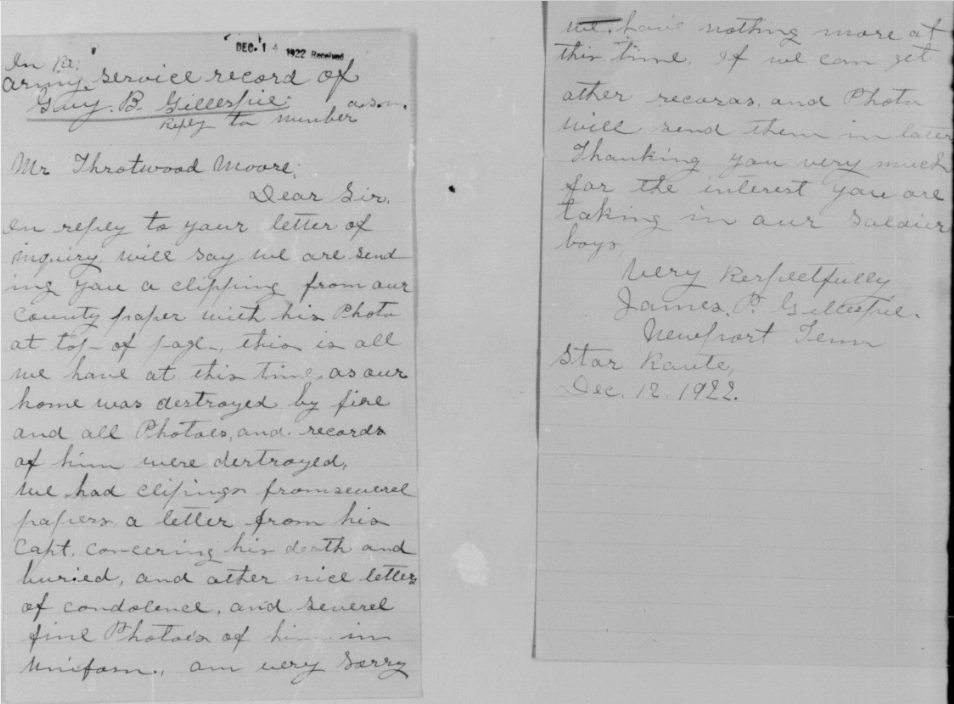 DEC. 14 1922 Received
In re:
Army service record of
Guy. B. Gillespie.
Reply to number
Mr Throtwood Moore;
Dear Sir.
In reply to your letter of
inquiry, will say we are send
ing you a clipping from our
County paper with his Photo
at top of page, this is all
we have at this time, as our
home was destroyed by fire
and all Photoes, and records
of him were destroyed,
We had clipings from severel
papers, a letter from his
Capt. concering his death and
buried, and other nice letters
of condolence, and severel
fine Photoes of him in
Uniform., am very sorry
we have nothing more at
this time, If we can get
other records, and Photo
will send them in later
Thanking you very much
for the interest you are
taking in our Soldier
boys,
Very Respectfully
James. P. Gillespie.
Newport Tenn
Star Route,
Dec. 12. 1922.